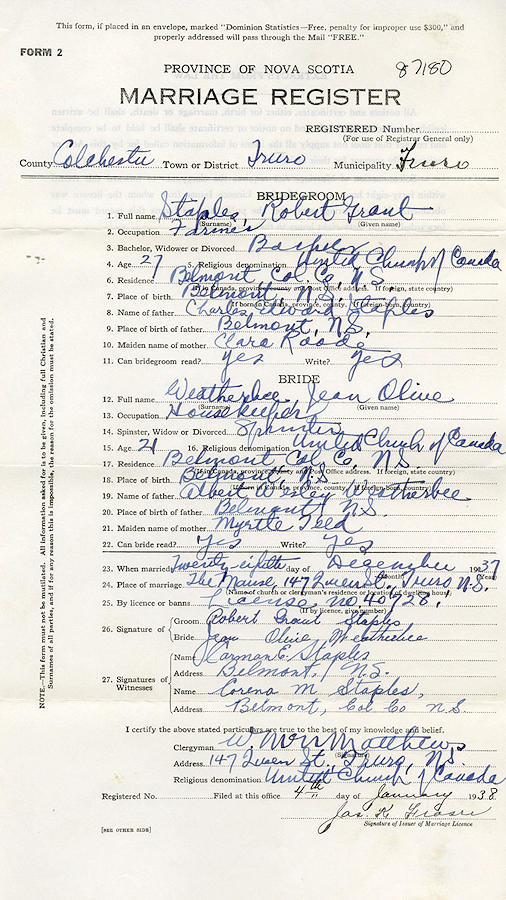 This form, if placed in an envelope, marked "Dominion Statistics—Free, penalty for improper use $300," and
properly addressed will pass through the Mail "FREE."
FORM 2
PROVINCE OF NOVA SCOTIA 87180
MARRIAGE REGISTER
REGISTERED Number
(For use of Registrar General only)
County Colchester Town or District Truro Municipality Truro
BRIDEGROOM
1. Full name Staples, Robert Grant
(Surname) (Given name)
2. Occupation Farmer
3. Bachelor, Widower or Divorced Bachelor
4. Age 27 5. Religious denomination United Church of Canada
6. Residence Belmont, Col. Co, N.S.
(If in Canada, province, county and Post Office address. If foreign, state country)
7. Place of birth Belmont, N.S.
(If born in Canada, province, county. If foreign-born, country)
8. Name of father Charles Edward Staples
9. Place of birth of father Belmont, N.S.
10. Maiden name of mother Clara
11. Can bridegroom read? yes Write? yes
BRIDE
12. Full name Weatherbee, Jean Olive
(Surname) (Given name)
13. Occupation Housekeeper
14. Spinster, Widow or Divorced Spinster
15. Age 21 16. Religious denomination United Church of Canada
17. Residence Belmont, Col. Co, N.S.
(If in Canada, province, county and Post Office address. If foreign, state country)
18. Place of birth Belmont, N.S.
(If born in Canada, province, county. If foreign-born, country)
19. Name of father Albert Wesley Weatherbee
20. Place of birth of father Belmont, N.S.
21. Maiden name of mother Myrtle Teed
22. Can bride read? yes Write? yes
23. When married Twenty-eighth day of December 1937
(Month) (Year)
24. Place of marriage The Manse, 147 Queen St., Truro N.S.
(Name of church or clergyman's residence or location of dwelling house)
25. By licence or banns License, no 40728.
(If by licence, give number)
26. Signature of
Groom Robert Grant Staples
Bride Jean Olive Weatherbee
27. Signatures of
Witnesses
Name Carman E. Staples
Address Belmont, N.S.
Name Corena M Staples,
Address Belmont, Col Co N.S.
I certify the above stated particulars are true to the best of my knowledge and belief.
Clergyman Matthews
(Signature)
Address 147 Queen St., Truro, N.S.
Religious denomination United Church of Canada
Registered No. Filed at this office 4th day of January 1938
Jas. K Fraser
Signature of Issuer of Marriage Licence
[SEE OTHER SIDE]
NOTE.—This form must not be mutilated. All information asked for is to be given, including full Christian and
Surnames of all parties, and if for any reason this is impossible, the reason for the omission must be stated.